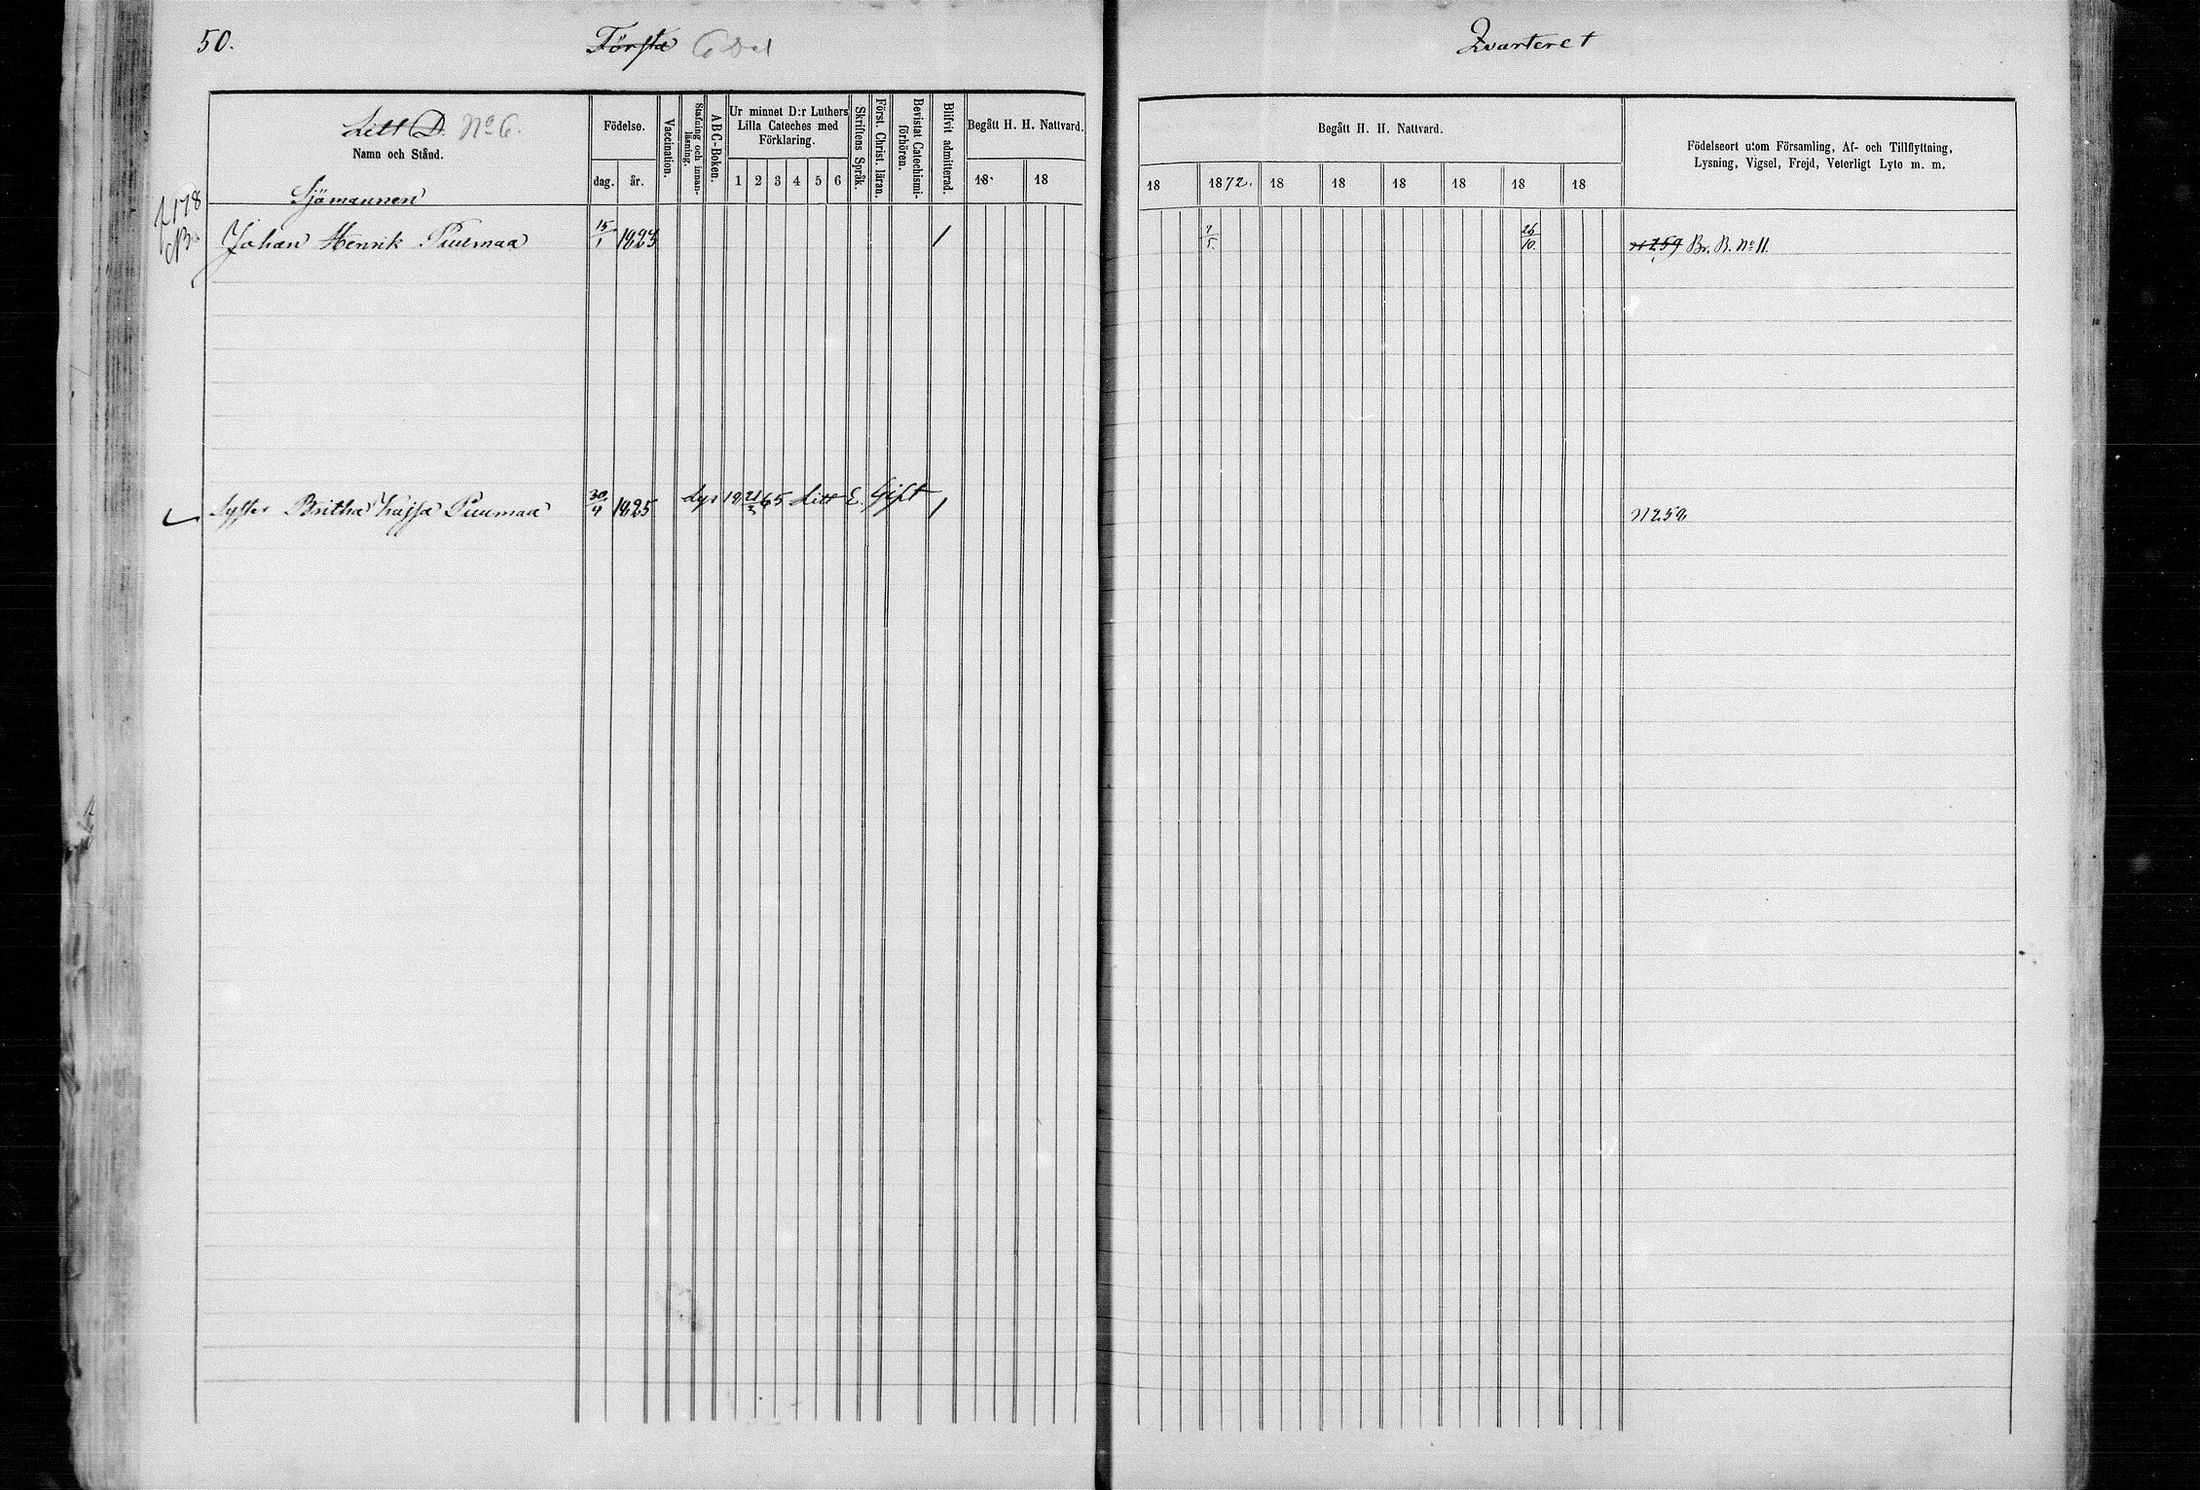 50.
Första 6 Del
Qvarteret
Litt D. No 6.
Namn och Stånd.
Födelse.
dag. år.
Vaccination.
Stafning och innanläsning.
ABC-Boken.
Ur minnet D:r Luthers
Lilla Cateches med
Förklaring.
1 2 3 4 5 6
Skriftens Språk.
Först. Christ. läran.
Bevistat Catechismiförhören.
Blifvit admitterad.
Begått H. H. Nattvard.
18 18
Begått H. H. Nattvard.
18 1872. 18 18 18 18 18 18
Födelseort utom Församling, Af- och Tillflyttning,
Lysning, Vigsel, Frejd, Veterligt Lyte m. m.
Sjömannen
Johan Henrik Puumaa 15/1 1823 / 26/10 N 259 Br. B. No 11.
Syster Britha Kajsa Puumaa 30/4 1825 Lyst 18 21/3 65 Litt E. Gift /